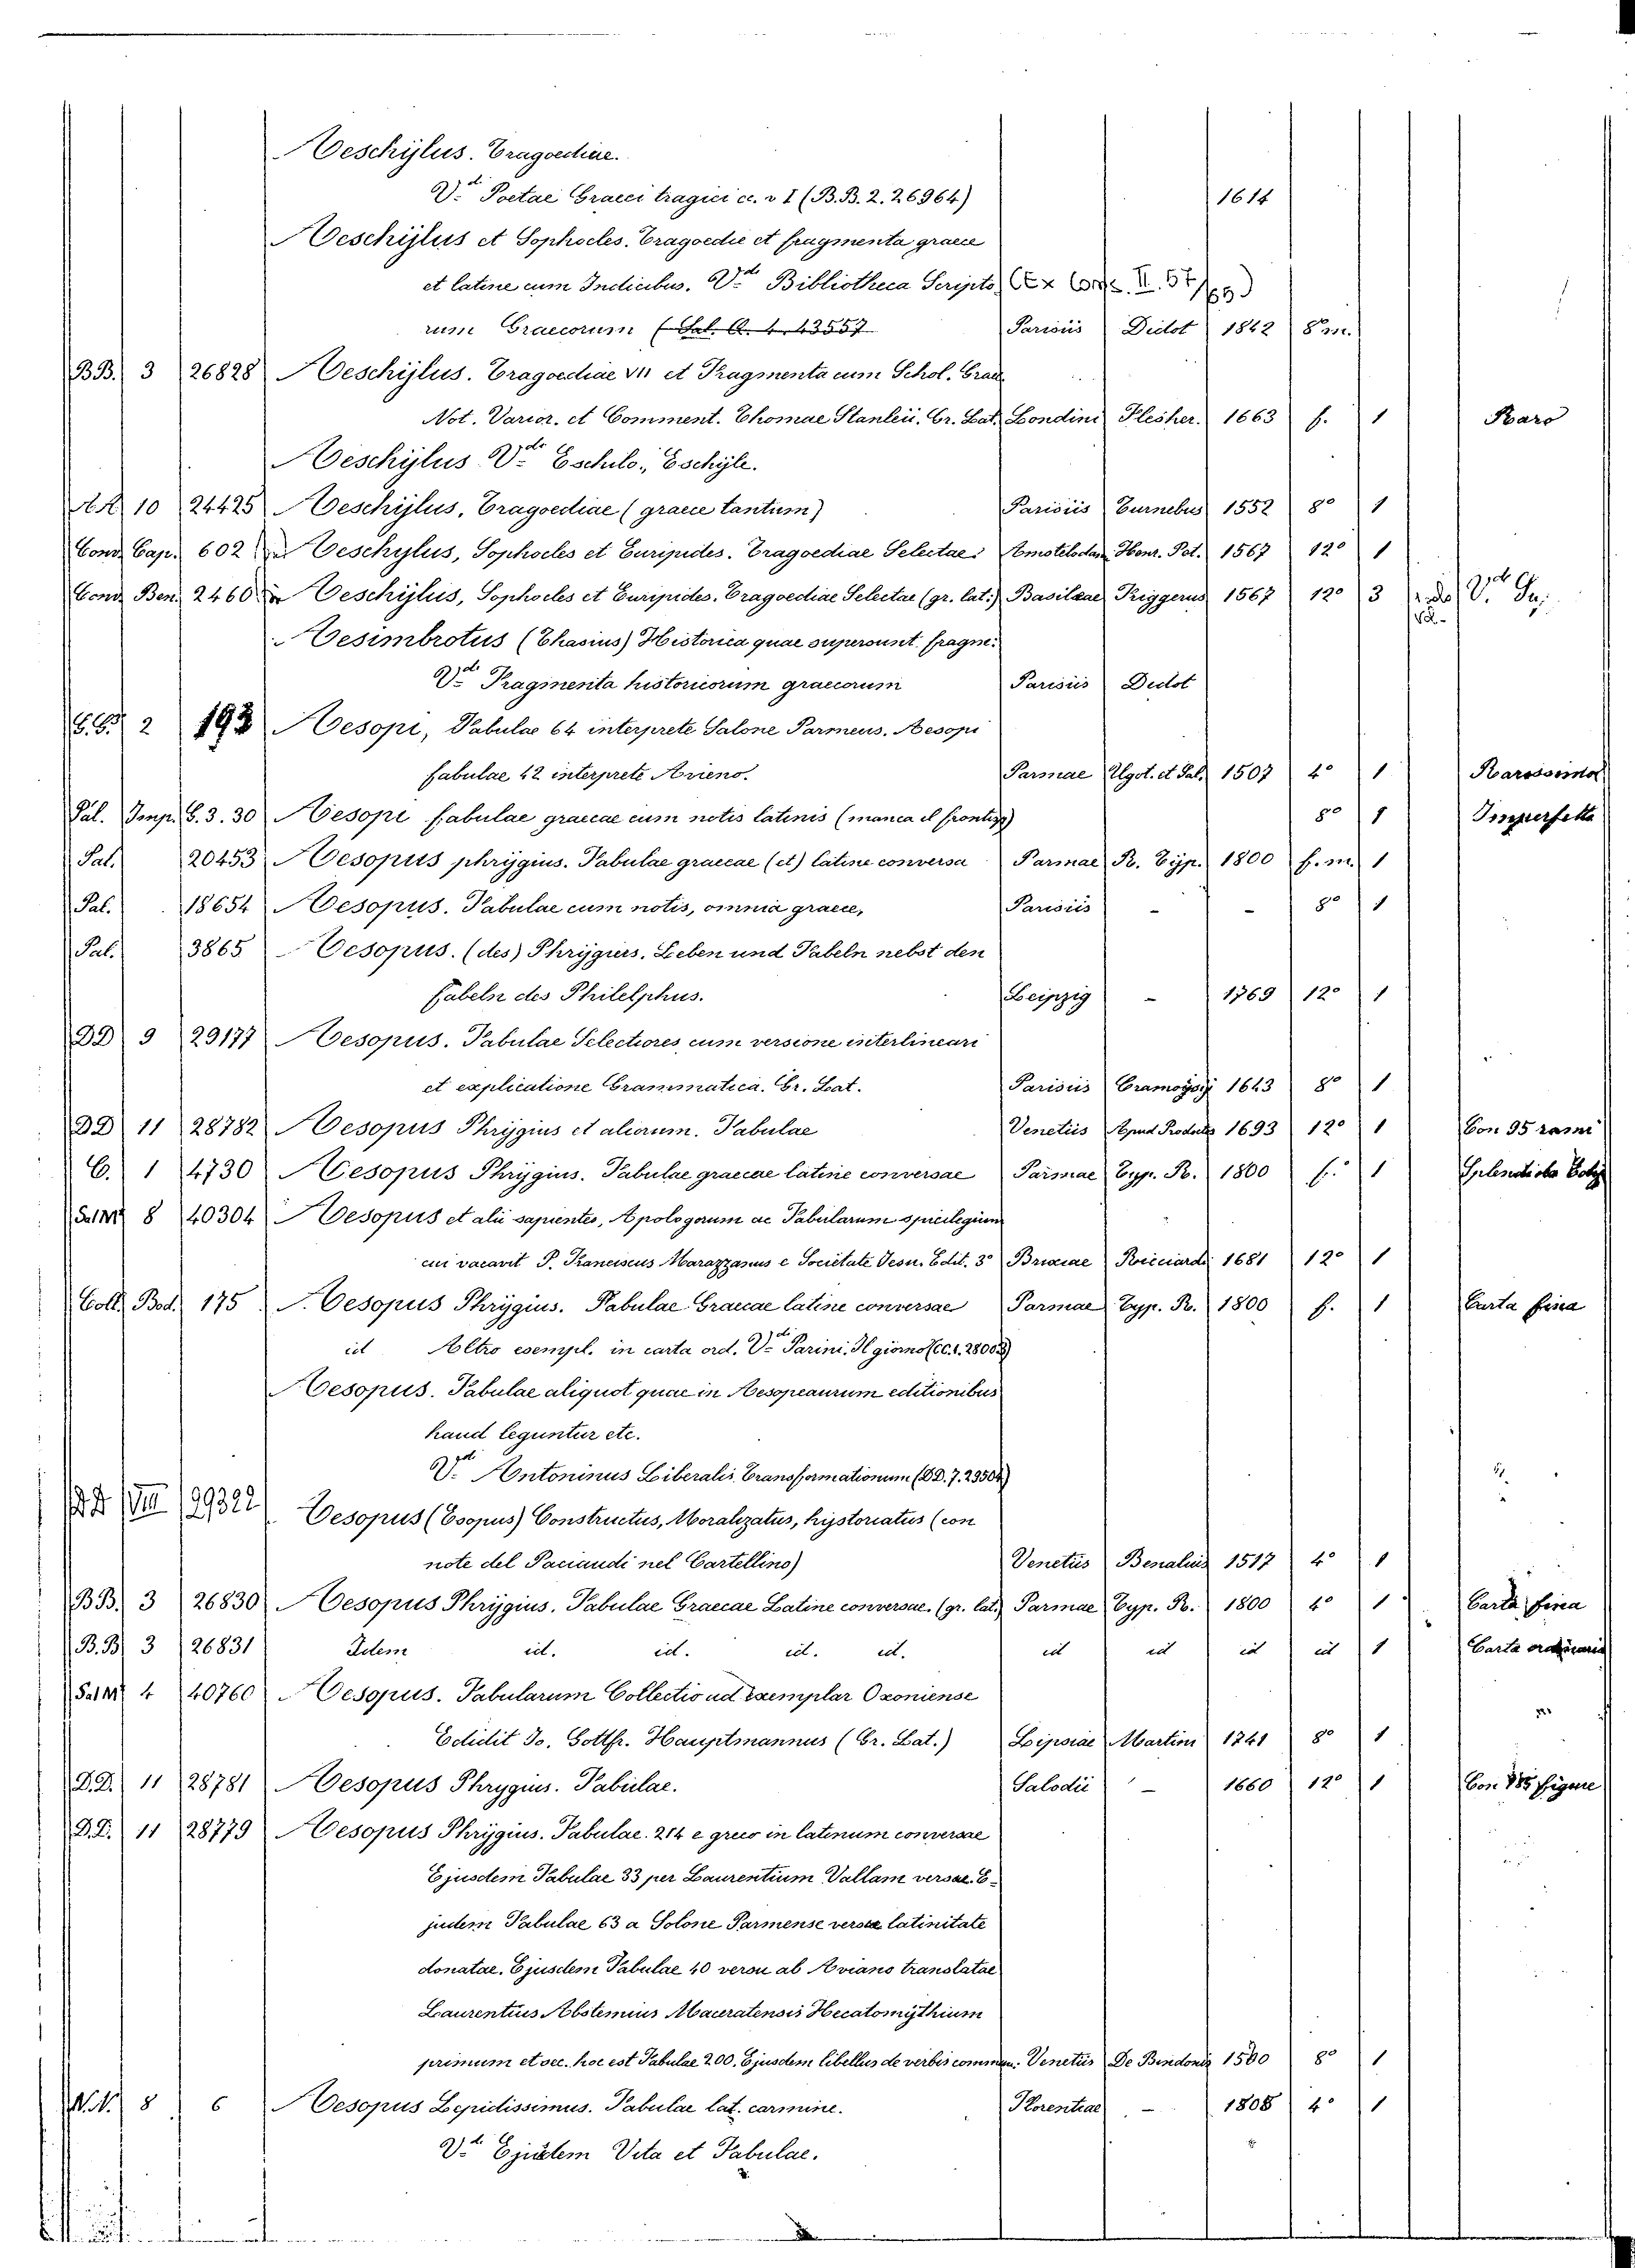 Aeschÿlus. Tragoediae.
V.di Poetae Graeci tragici cc. v I (B.B. 2. 26964) 1614
Aeschÿlus et Sophocles. Tragoedie et fragmenta graece
et latine cum Indicibus. V.di Bibliotheca Scripto (Ex
rum Graecorum (Sal. A. 1. 43557 Parisiis Didot 1842 8° m.
BB. 3 26828 Aeschÿlus. Tragoediae VII et Fragmenta cum Schol. Graec
Not. Varior. et Comment. Thomae Stanleii. Gr. Lat. Londini Flesher. 1663 f. 1 Raro
Aeschÿlus V.di Eschilo, Eschÿle.
AA 10 24425 Aeschÿlus, Tragoediae (graece tantum) Parisiis Turnebus 1552 8° 1
Cond. Cap. 602 Aeschylus, Sophocles et Euripides. Tragoediae Selectae. Amstelodam Henr. Pet. 1567 12° 1
Cond. Ben. 2460 Aeschÿlus, Sophocles et Euripides. Tragoediae Selectae (gr. lat.) Basileae Friggerus 1567 12° 3
Aesimbrotus (Thasius) Historica quae supersunt. fragm.
V.di Fragmenta historicorum graecorum Parisiis Didot
G.G. 2 193 Aesopi, Fabulae 64 interprete Salone Parmens. Aesopi
fabulae 42 interprete Arieno. Parmae Ugol. et Sal. 1507 4° 1 Rarissimo
Pal. Imp. G. 3. 30 Aesopi fabulae graecae cum notis latinis (manca il frontisp) 8° 1 Imperfetto
Pal. 20453 Aesopus phrÿgius. Fabulae graecae (et) latine conversa Parmae R. Tÿp. 1800 f. m. 1
Pal. 18654 Aesopus. Fabulae cum notis, omnia graece, Parisiis - - 8° 1
Pal. 3865 Aesopus. (des) Phrÿgiers. Leben und Fabeln nebst den
fabeln des Philelphus. Leipzig - 1769 12° 1
DD 9 29177 Aesopus. Fabulae Selectiores cum versione interlineari
et explicatione Grammatica. Gr. Lat. Parisiis Cramoysÿ 1643 8° 1
DD 11 28782 Aesopus Phrÿgius et aliorum. Fabulae Venetiis Apud Prodotto 1693 12° 1 Con 95 rami
C. 1 4730 Aesopus Phrÿgius. Fabulae graecae latine conversae Parmae Typ. R. 1800 f. 1
Sal M 8 40304 Aesopus et alii sapientes, Apologorum ac Fabularum spicilegium
cui vacavit P. Franciscus Marazzanus e Societate Jesu. Edit. 3ª Brixiae Ricciardi 1681 12° 1
Coll. Bod. 175 Aesopus Phrÿgius. Fabulae Graecae latine conversae Parmae Typ. R. 1800 f. 1 Carta fina
id Altro esempl. in carta ord. V.di Parini. Il giorno (CC. 1. 28003)
Aesopus. Fabulae aliquot quae in Aesopearum editionibus
haud leguntur etc.
V.di Antoninus Liberalis. Transformationum (DD. 7. 29504)
VIII 29322 Aesopus (Esopus) Constructus, Moralizatus, hÿstoriatus (con
note del Paciaudi nel Cartellino) Venetiis Benalius 1517 4° 1
BB. 3 26830 Aesopus Phrÿgius. Fabulae Graecae Latine conversae. (gr. lat.) Parmae Typ. R. 1800 4° 1 Carta fina
B.B. 3 26831 Idem id. id. id. id. id id id id 1 Carta ordinaria
Sal M 4 40760 Aesopus. Fabularum Collectio ad exemplar Oxoniense
Edidit Io. Gottfr. Hauptmannus (Gr. Lat.) Lipsiae Martini 1741 8° 1
D.D. 11 28781 Aesopus Phrygius. Fabulae. Salodii - 1660 12° 1 Con 185 figure
D.D. 11 28779 Aesopus Phrÿgius. Fabulae. 214 e greco in latinum conversae
Ejusdem Fabulae 33 per Laurentium Vallam versae. E-
judem Fabulae 63 a Solone Parmense versae latinitate
donatae. Ejusdem Fabulae 40 versu ab Aviano translatae
Laurentius Abstemius Maceratensis Hecatomÿthium
primum et sec. hoc est Fabulae 200. Ejusdem libellus de verbis commun. Venetiis De Bindonis 1580 8° 1
N.N. 8 6 Aesopus Lepidissimus. Fabulae lat. carmine. Florentiae - 1808 4° 1
V.di Ejusdem Vita et Fabulae.